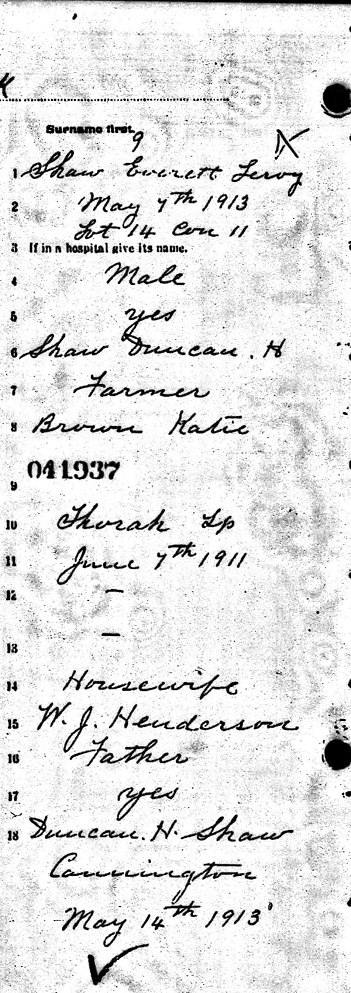 Surname first.
9
1 Shaw Everett Leroy
2 May 7th 1913
Lot 14 Con 11
3 If in a hospital give its name.
4 Male
5 yes
6 Shaw Duncan. H
7 Farmer
8 Brown Katie
041937
9
10 Thorah Tp
11 June 7th 1911
12 –
13 –
14 Housewife
15 W. J. Henderson
16 Father
17 yes
18 Duncan. H. Shaw
Cannington
May 14th 1913